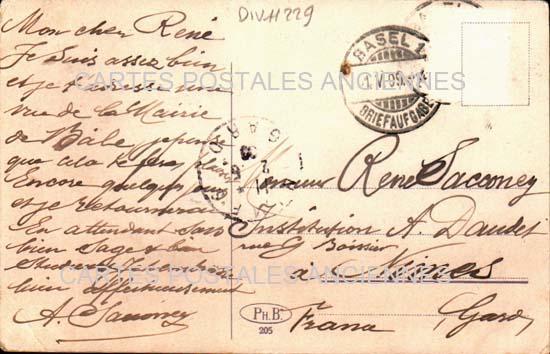 DIV.11229
Mon cher René
Je suis assez bien
et je t'adresse une
vue de la Mairie
de Bâle, je pense
que cela te fera plaisir
Encore quelques jours
et je retournerai
En attendant sois
bien sage & bien
bien affectueusement
A. Sacconey
BASEL 1
1.V.09.
BRIEFAUFGABE
GARD
Monsieur René Sacconey
Institution A. Daudet
rue G. Boissier
à Nîmes
Gard
France
PH.B.
205
CARTES POSTALES ANCIENNES
CARTES POSTALES ANCIENNES